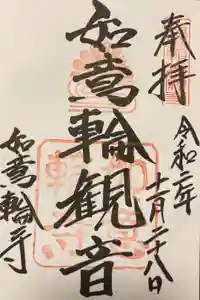 奉拝
令和二年
十一月二十八日
如意輪観音
如意輪寺